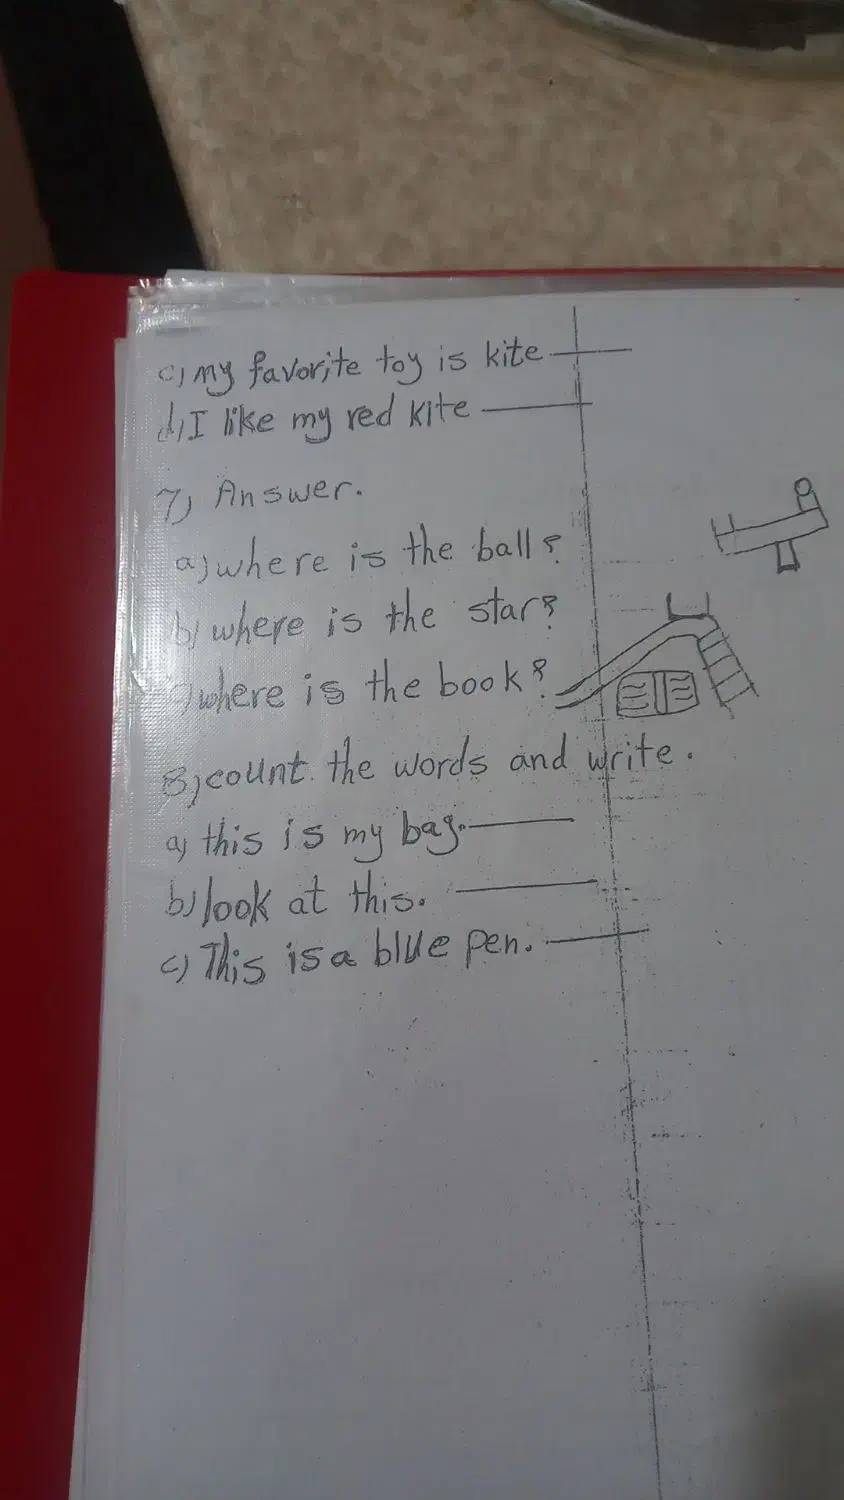 c) my favorite toy is kite
d) I like my red kite
7) Answer.
a) where is the ball?
b) where is the star?
c) where is the book?
8) count the words and write.
a) this is my bag.
b) look at this.
c) This is a blue pen.